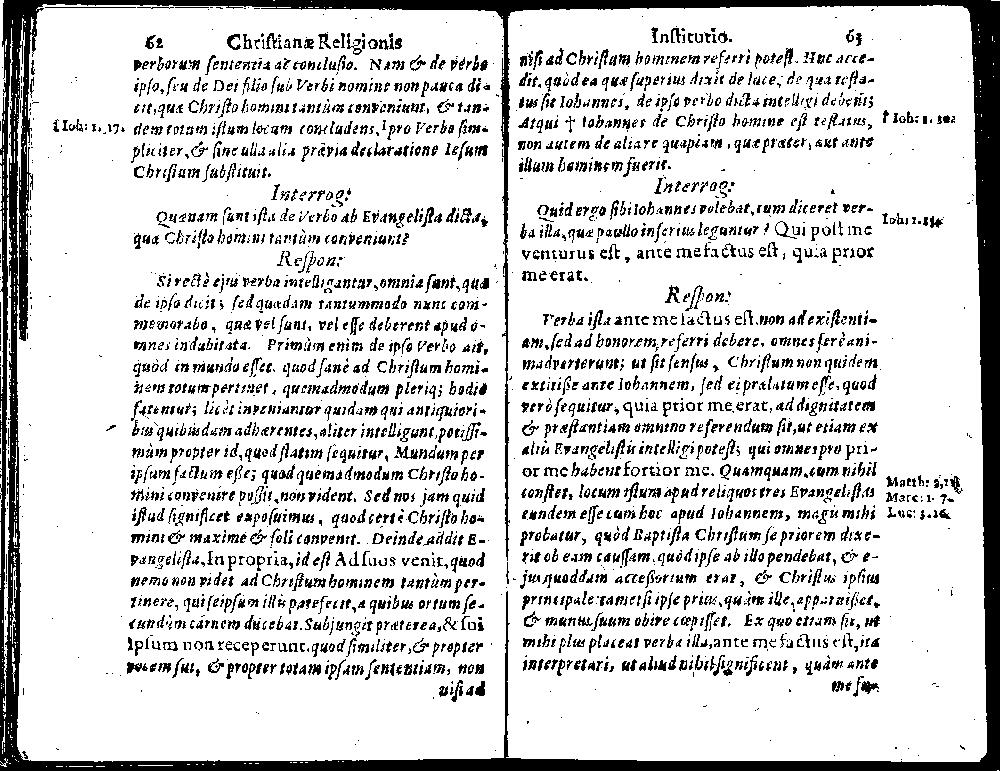 62 Christianæ Religionis
verborum sententia ac conclusio. Nam & de verbo
ipso, seu de Dei filio sub Verbi nomine non pauca di-
cit, quæ Christo homini tantùm conveniunt, & tan-
† Ioh: 1. 17.
dem totum istum locum concludens, † pro Verbo sim-
pliciter, & sine ulla alia prævia declaratione Iesum
Christum substituit.
Interrog:
Quænam sunt ista de Verbo ab Evangelista dicta,
quæ Christo homini tantùm conveniunt?
Respon:
Si rectè ejus verba intelligantur, omnia sunt, quæ
de ipso dicit; sed quædam tantummodo nunc com-
memorabo, quæ vel sunt, vel esse deberent apud o-
mnes indubitata. Primùm enim de ipso Verbo ait,
quòd in mundo esset. quod sanè ad Christum homi-
nem totum pertinet, quemadmodum pleriq; hodie
fatentur; licèt inveniantur quidam qui antiquiori-
bus quibusdam adhærentes, aliter intelligunt, potissi-
mùm propter id, quod statim sequitur, Mundum per
ipsum factum esse; quod quemadmodum Christo ho-
mini convenire possit, non vident. Sed nos jam quid
istud significet exposuimus, quod certè Christo ho-
mini & maximè & soli convenit. Deinde addit E-
vangelista, In propria, id est Ad suos venit, quod
nemo non videt ad Christum hominem tantùm per-
tinere, qui seipsum illis patefecit, a quibus ortum se-
cundùm carnem ducebat. Subjungit præterea, & sui
Ipsum non receperunt. quod similiter, & propter
vocem sui, & propter totam ipsam sententiam, non
nisi ad
Institutio. 63
nisi ad Christum hominem referri potest. Huc acce-
dit, quòd ea quæ superius dixit de luce, de qua testa-
tus sit Iohannes, de ipso verbo dicta intelligi debent;
Atqui † Iohannes de Christo homine est testatus,
† Ioh: 1. 30.
non autem de alia re quapiam, quæ præter, aut ante
illum hominem fuerit.
Interrog:
Quid ergo sibi Iohannes volebat, cum diceret ver-
ba illa, quæ paullo inferius leguntur? Qui post me
Ioh: 1.
venturus est, ante me factus est, quia prior
me erat.
Respon:
Verba ista ante me factus est, non ad existenti-
am, sed ad honorem referri debere, omnes ferè ani-
madverterunt; ut sit sensus, Christum non quidem
extitisse ante Iohannem, sed ei prælatum esse, quod
verò sequitur, quia prior me erat, ad dignitatem
& præstantiam omnino referendum sit, ut etiam ex
aliis Evangelistis intelligi potest; qui omnes pro pri-
or me habent fortior me. Quamquam, cum nihil
Matth: 3.
constet, locum istum apud reliquos tres Evangelistas
Marc: 1. 7.
eundem esse cum hoc apud Iohannem, magis mihi
Luc: 3. 16.
probatur, quòd Baptista Christum se priorem dixe-
rit ob eam caussam, quòd ipse ab illo pendebat, & e-
jus quoddam accessorium erat, & Christus ipsius
principale: tametsi ipse prius, quàm ille, apparuisset,
& munus suum obire cœpisset. Ex quo etiam fit, ut
mihi plus placeat verba illa, ante me factus est, ita
interpretari, ut aliud nihil significent, quàm ante
me